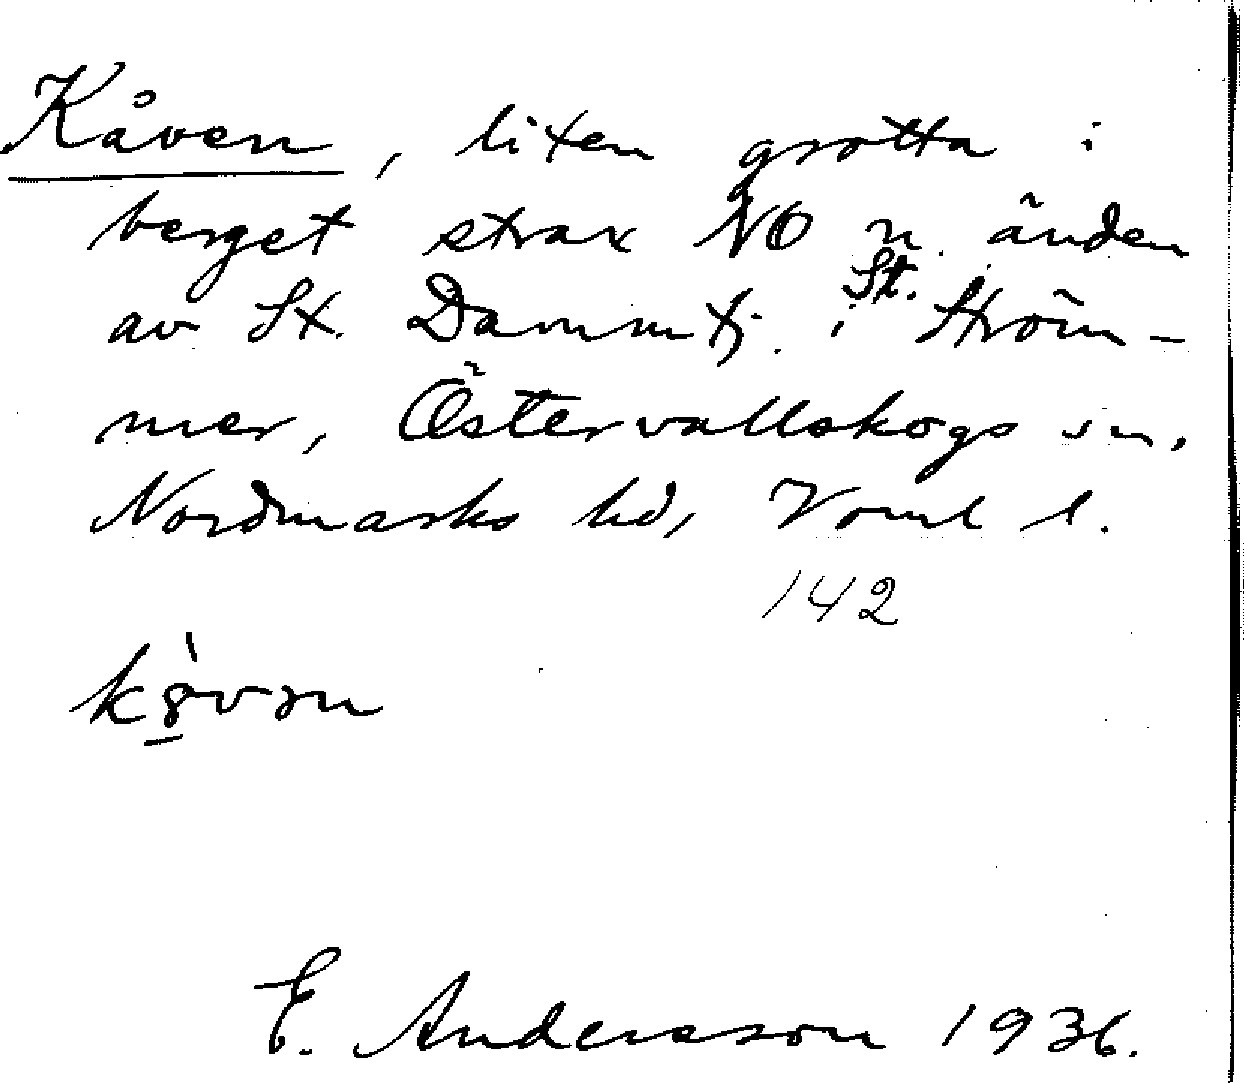 Kåven, liten grotta i
berget strax NO n. änden
av St. Dammtj. i St. Ström-
mer, Östervallskogs sn,
Nordmarks hd, Vrml l.
142
E. Andersson 1936.